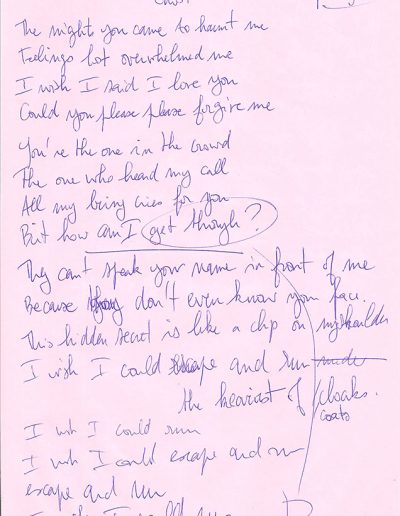 The nights you came to haunt me
Feelings hot overwhelmed me
I wish I said I love you
Could you please please forgive me
You're the one in the crowd
The one who heard my call
All my being cries for you
But how am I get through?
They can't speak your name in front of me
Because they don't even know your face.
This hidden secret is like a chip on my shoulder
I wish I could escape and run
the heaviest of cloaks.
coats
I wish I could run
I wish I could escape and run
escape and run